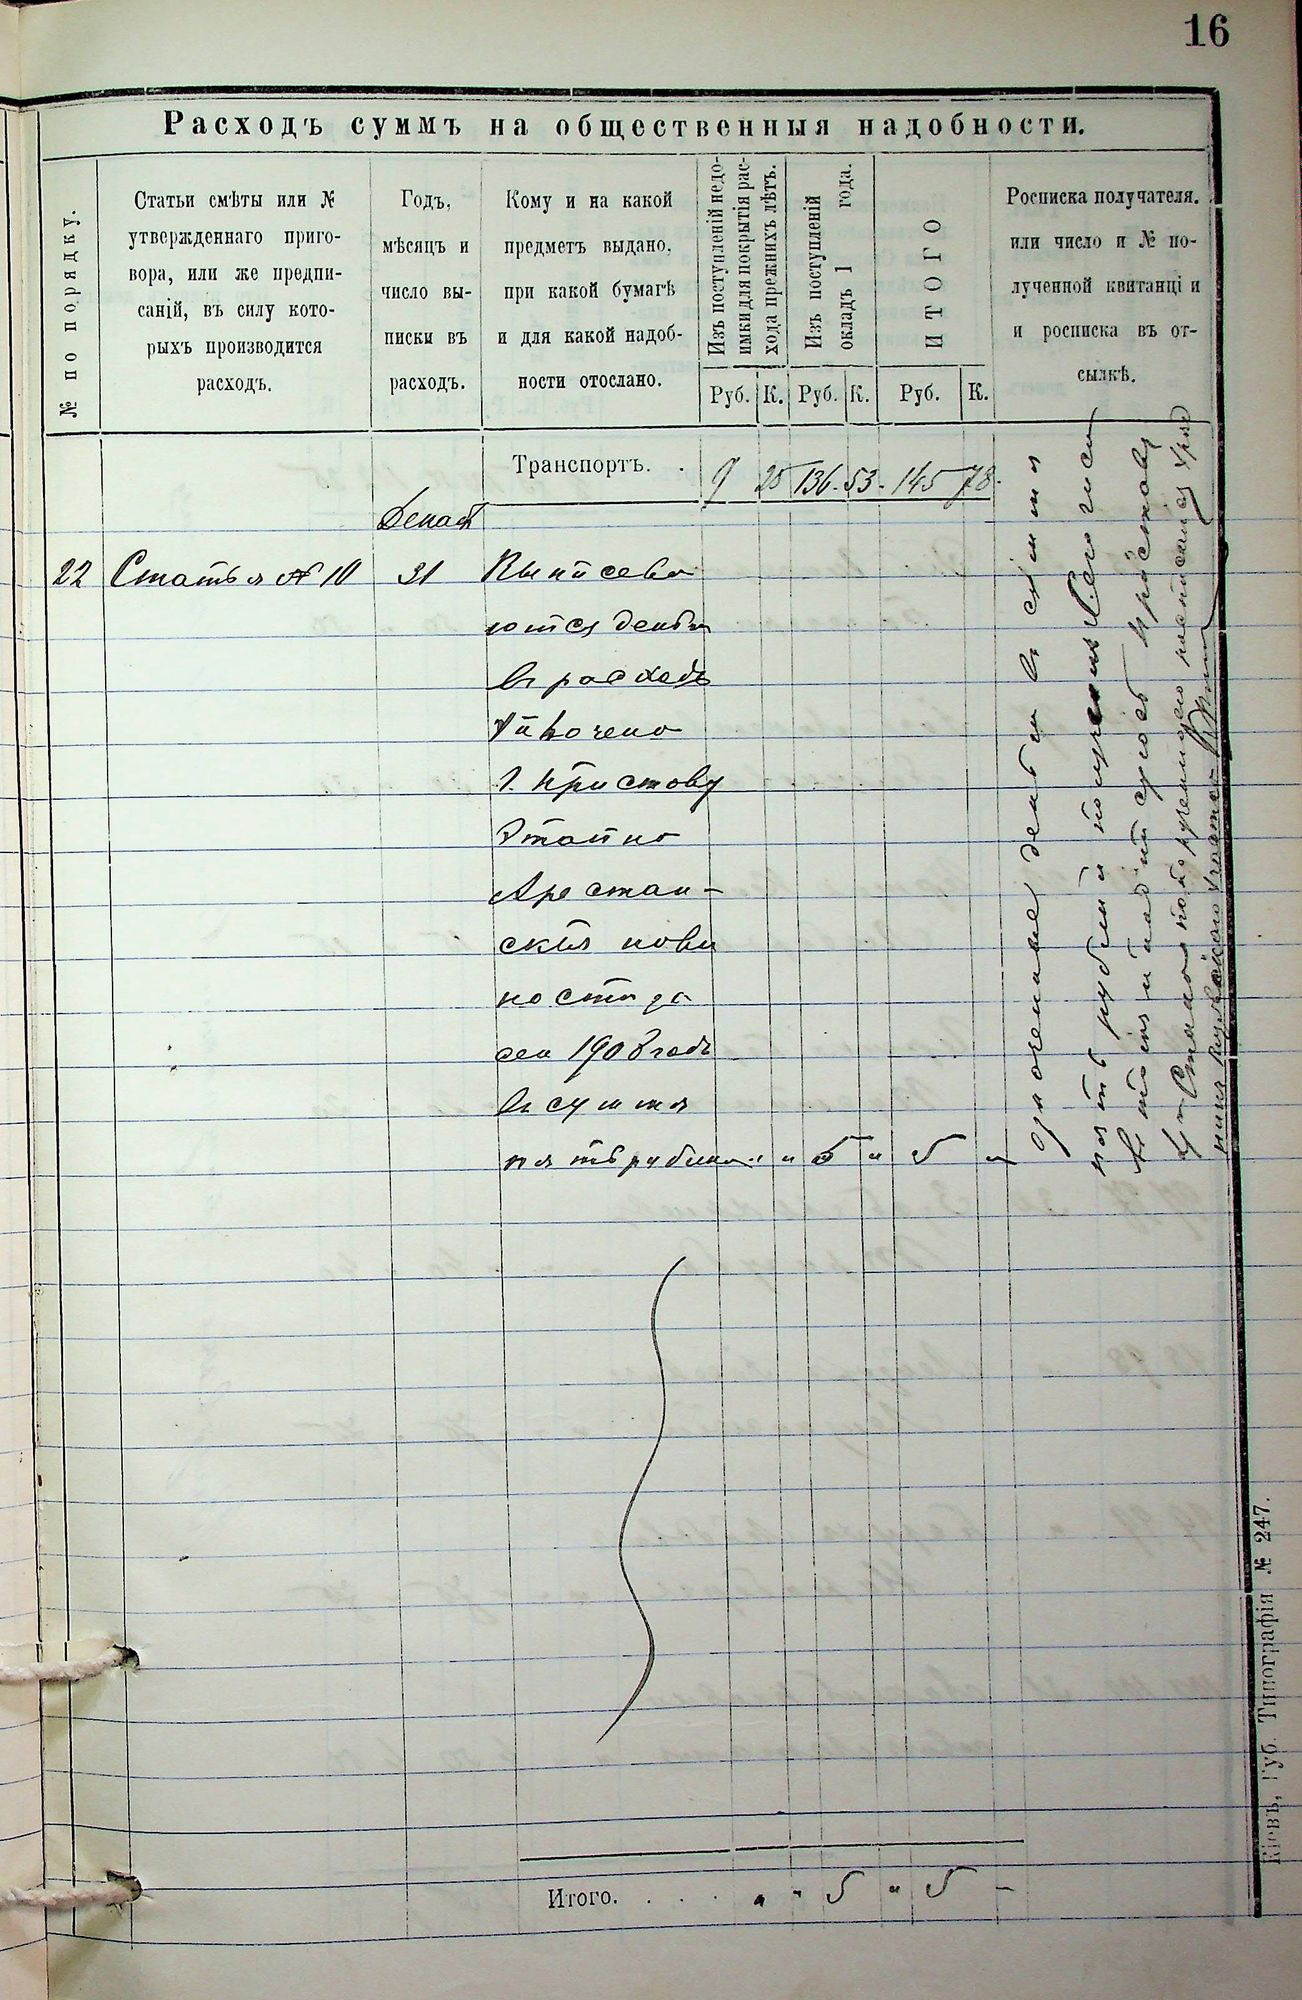 16
Расходъ суммъ на общественныя надобности.
№ по порядку.
Статьи смѣты или №
утвержденнаго приго-
вора, или же предпи-
саній, въ силу кото-
рыхъ производится
расходъ.
Годъ,
мѣсяцъ и
число вы-
писки въ
расходъ.
Кому и на какой
предметъ выдано,
при какой бумагѣ
и для какой надоб-
ности отослано.
Изъ поступленій недо-
имки для покрытія рас-
хода прежнихъ лѣтъ.
Изъ поступленій
окладъ 1 года.
ИТОГО
Росписка получателя.
или число и № по-
лученной квитанціи
и росписка въ от-
сылкѣ.
Руб. К. Руб. К. Руб. К.
Транспортъ. . 9 25 136 53 145 78
Декаб
22 Статья № 10 31 Выписева
ются деньги
въ расходъ
г. приставу
Этапно
Арестан-
скія пови
ности за
сей 1908 годъ
въ сумма
пять рублей " " 5 " 5 "
означенные деньги въ сумма
пять рублей получилъ
Итого. . . . " " 5 " 5 —
Кіевъ, Губ. Типографія № 247.